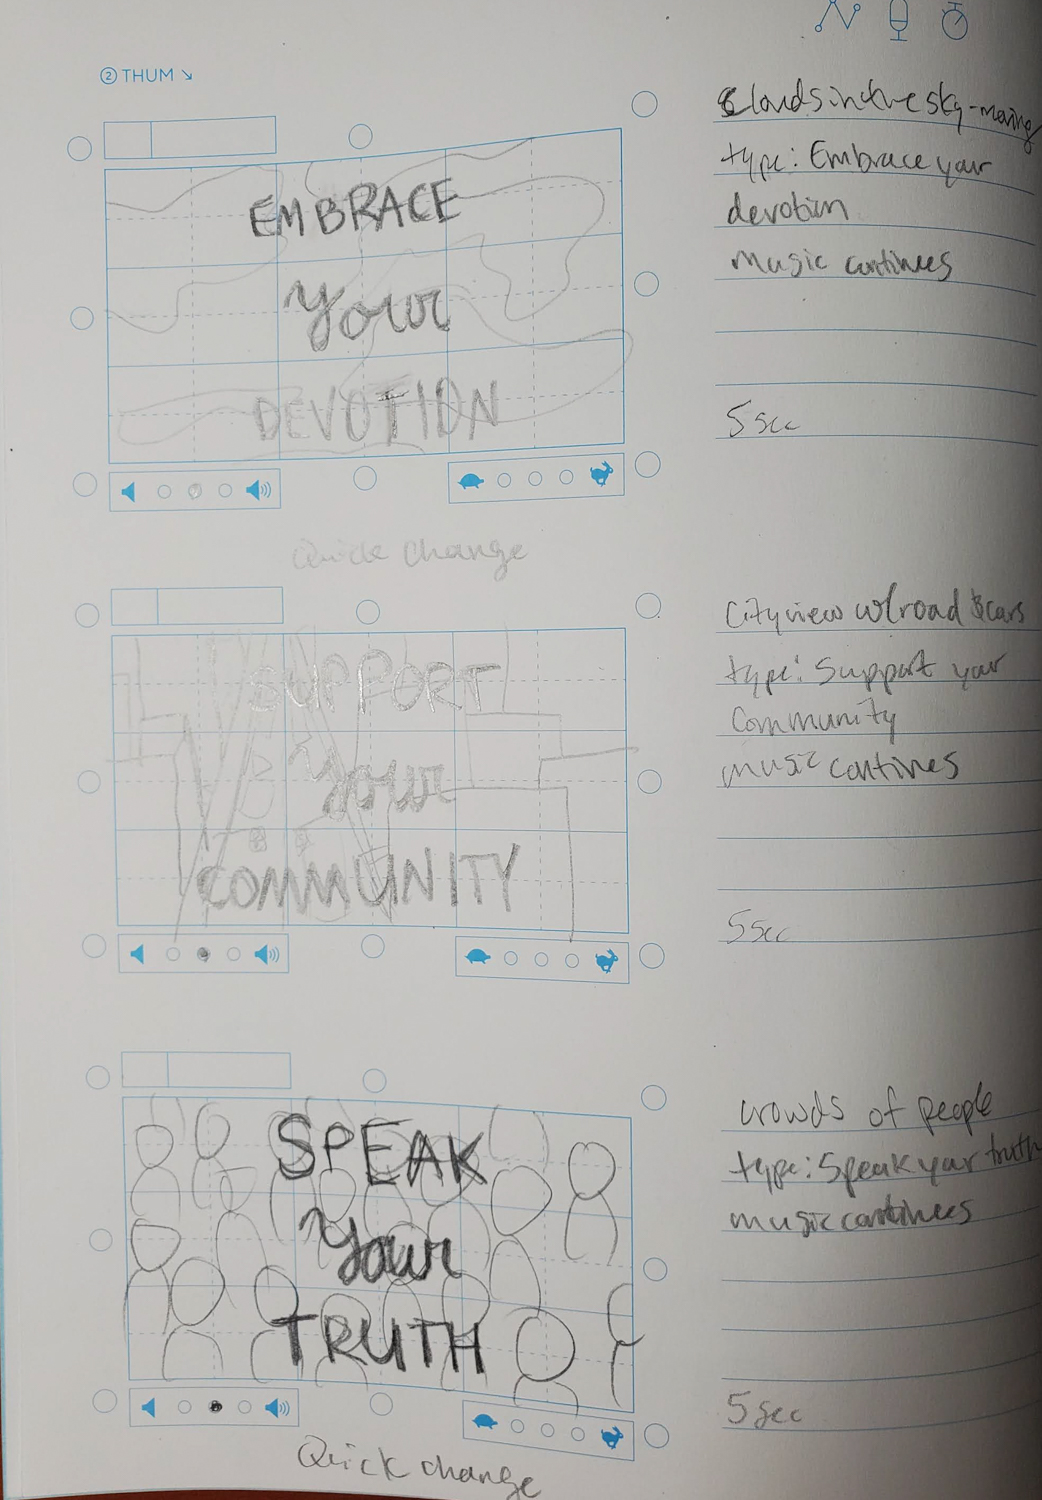 ② THUM ↘
EMBRACE
your
DEVOTION
Clouds in the sky - moving
type: Embrace your
devotion
music continues
5 sec
Quick change
SUPPORT
your
COMMUNITY
City view w/ road & cars
type: Support your
Community
music contines
5 sec
SPEAK
Your
TRUTH
crowds of people
type: Speak your truth
music continues
5 sec
Quick change